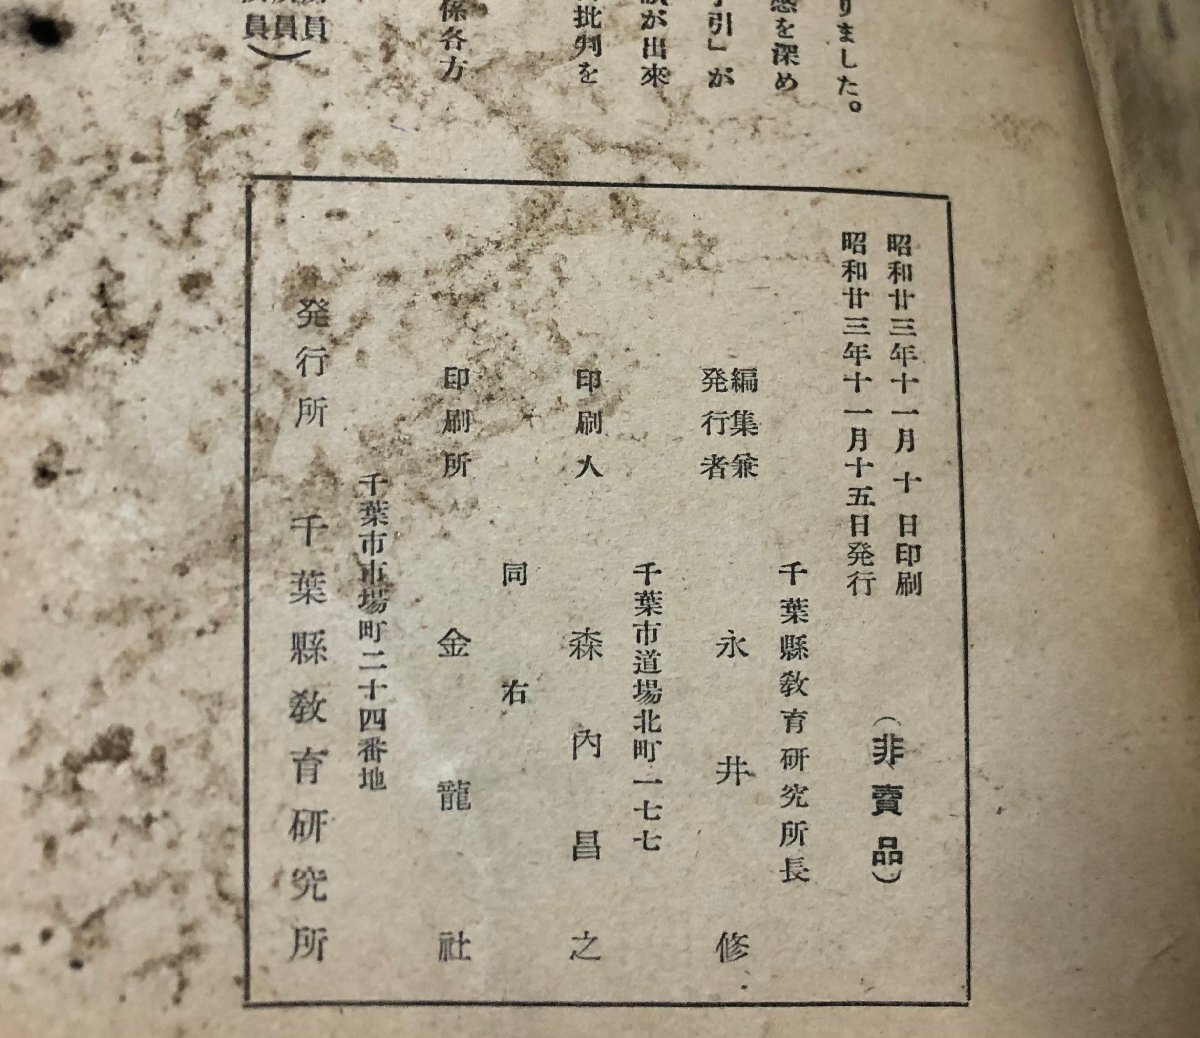 りました。
感を深め
引」が
が出来
批判を
係各方
員
員
員)
昭和廿三年十一月十日印刷
昭和廿三年十一月十五日発行
(非賣品)
千葉縣教育研究所長
編集兼
発行者
永井修
千葉市道場北町一七七
印刷人
森内昌之
同右
印刷所
金龍社
千葉市市場町二十四番地
発行所
千葉縣教育研究所